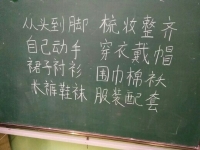 从头到脚 梳妆整齐
自己动手 穿衣戴帽
裙子衬衫 围巾棉袄
长裤鞋袜 服装配套